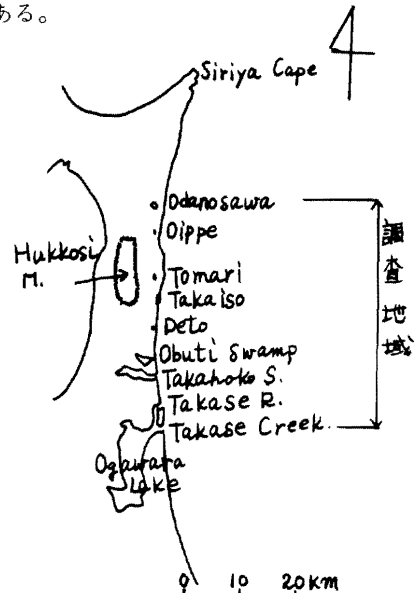 ある。
Siriya Cape
Odanosawa
Oippe
Hukkosi
M.
Tomari
Takaiso
Deto
Obuti Swamp
Takahoko S.
Takase R.
Takase Creek.
Ogawara
Lake
調査地域
0 10 20KM